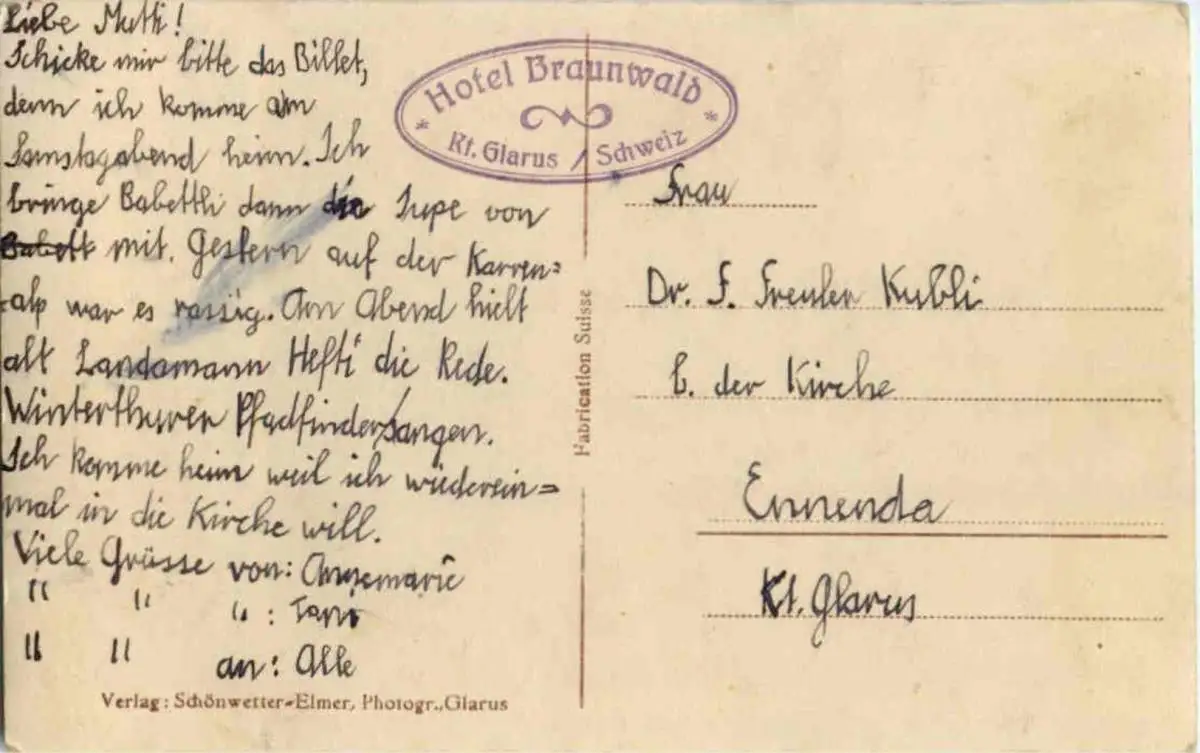 Liebe Mutti!
Schicke mir bitte das Billet,
denn ich komme am
Samstagabend heim. Ich
bringe Babettli dann die Jupe von
Babett mit. Gestern auf der Karren=
=alp war es rassig. Am Abend hielt
alt Landamann Hefti die Rede.
Winterthurer Pfadfinder sangen.
Ich komme heim weil ich wiederein=
mal in die Kirche will.
Viele Grüsse von: Annemarie
" " " :
" " an: Alle
Verlag: Schönwetter-Elmer, Photogr., Glarus
Hotel Braunwald
Kt. Glarus / Schweiz
Fabrication Suisse
Frau
Dr. F. Freuler Kubli
b. der Kirche
Ennenda
Kt. Glarus